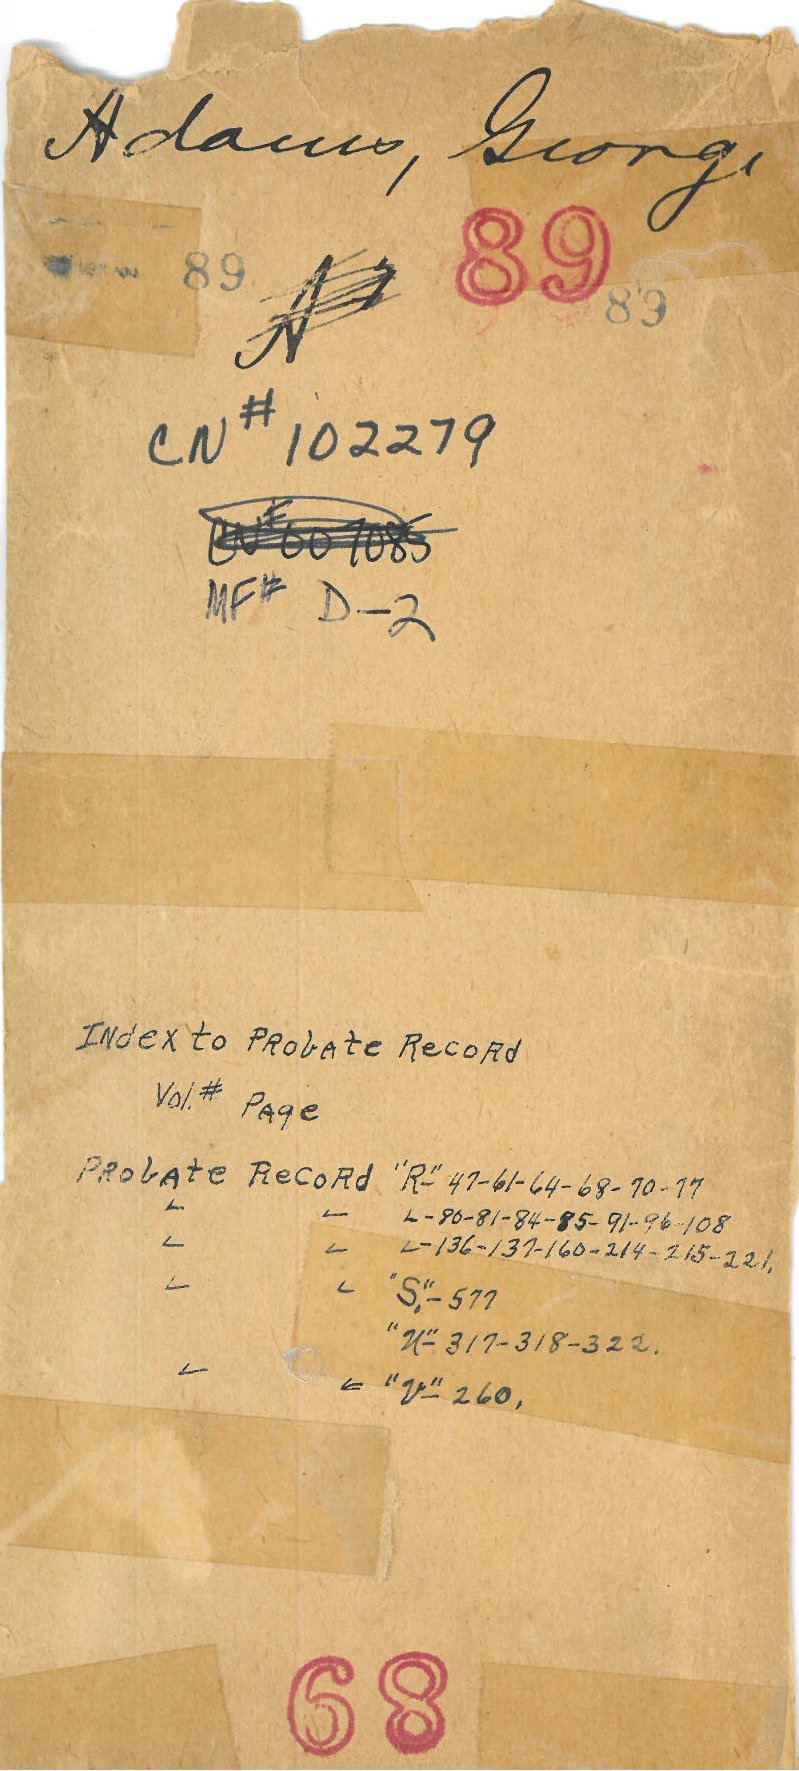 Adams, George
89 89
89
CN# 102279
MF# D-2
Index to Probate Record
Vol.# Page
Probate Record "R"- 47-61-64-68-70-77
" " "-80-81-84-85-91-96-108
" " "-136-137-160-214-215-221.
" " "S,"- 577
"U"- 317-318-322.
" " "V"- 260.
68